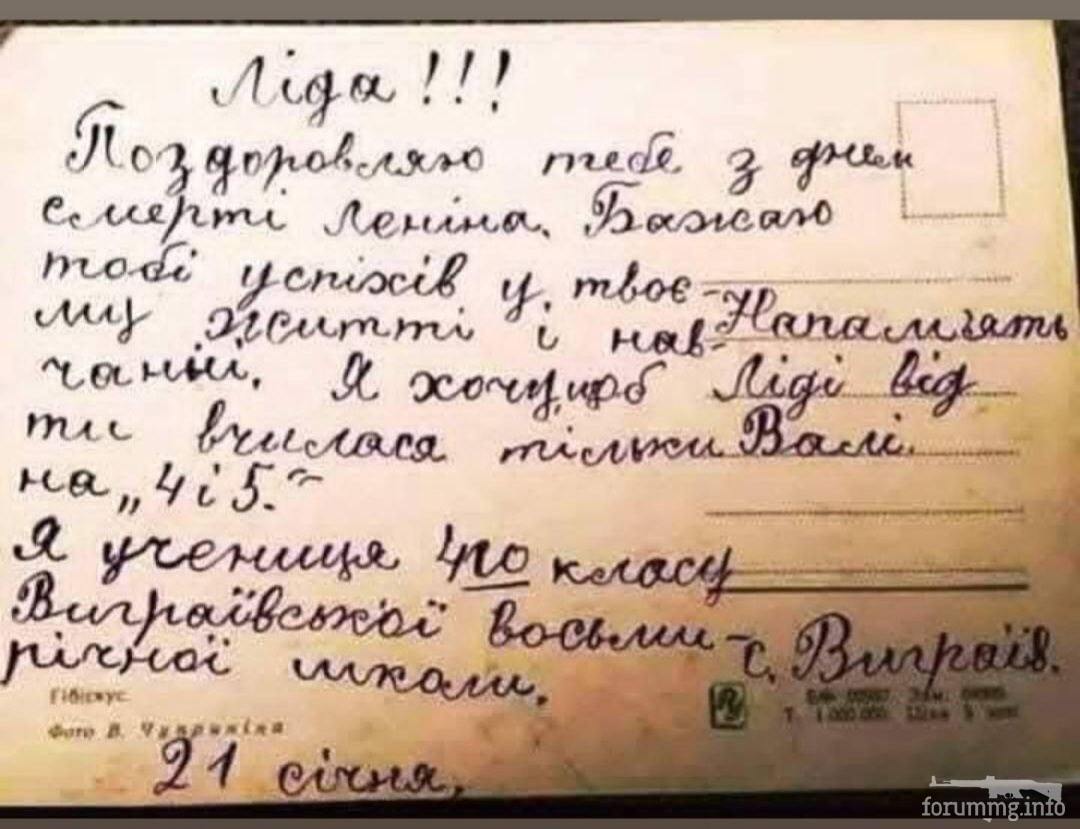 Ліда!!!
Поздоровляю тебе з днем
смерті Леніна. Бажаю
тобі успіхів у твоє-
му житті і нав-
чанні. Я хочу щоб
ти вчилася тільки
на „4 і 5."
Напам'ять
Ліді від
Валі.
Я учениця 4го класу
Виграївської восьми-
річної школи.
с. Виграїв.
Гібіскус.
Фото В. Чуприніна
Т. 1 000 000. Ціна 3 коп.
21 січня.
forummg.info